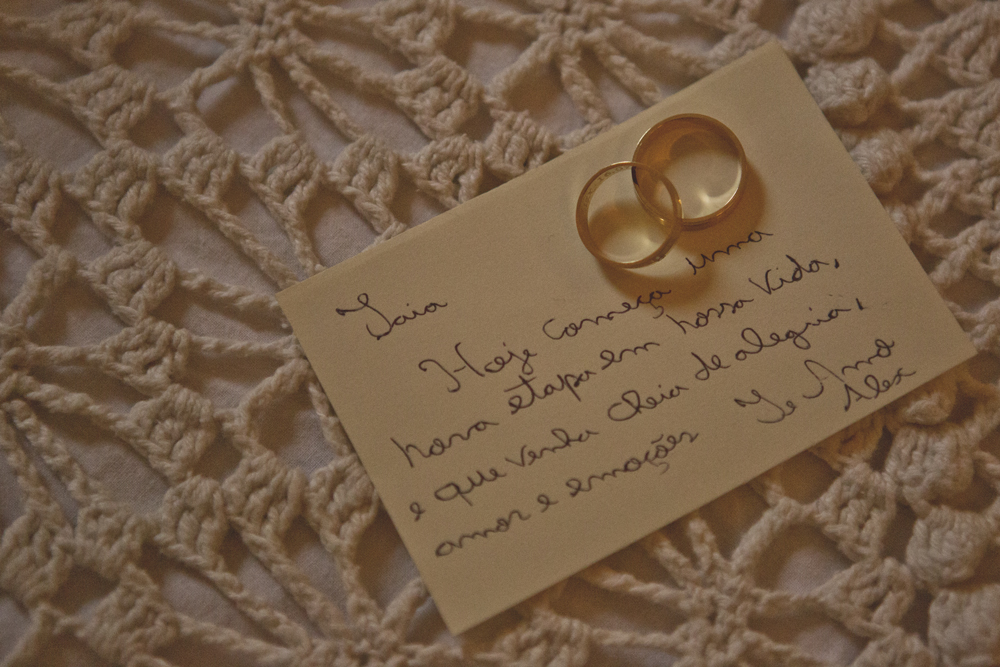 Iaia
Hoje começa uma
nova etapa em nossa vida,
e que venha cheia de alegria,
amor e emoções
Te Amo
Alex